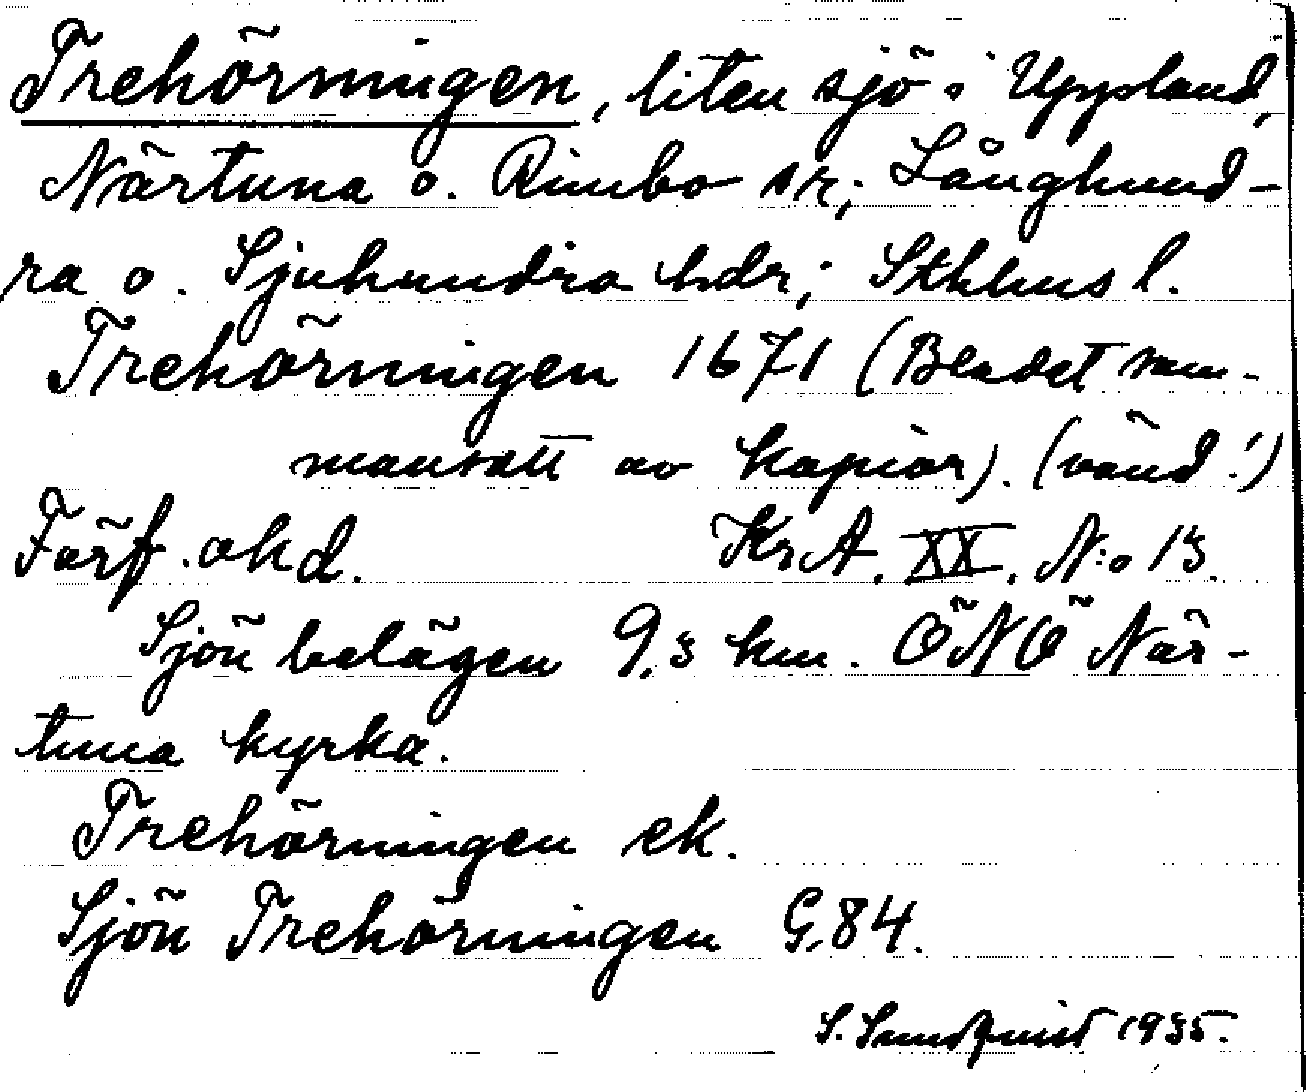 Trehörningen, liten sjö i Uppland,
Närtuna o. Rimbo sr; Långhund-
ra o. Sjuhundra hdr; Sthlms l.
Trehörningen 1671 (Bladet sam-
mansatt av kopior). (vänd!)
Förf. okd. KrA. XX. N:o 13.
Sjön belägen 9,3 km. ÖNÖ När-
tuna kyrka.
Trehörningen ek.
Sjön Trehörningen G,84.
S. Sundquist 1935.